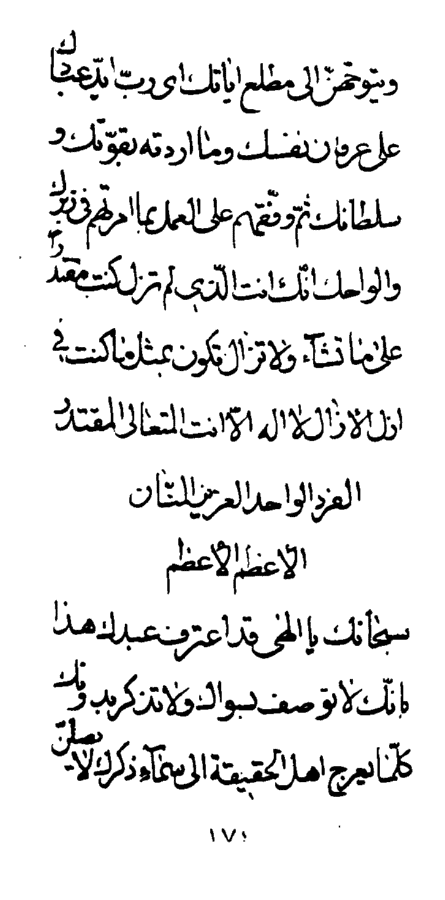 ويتوجّهنّ الى مطلع اياتك اى ربّ ايّد عبادك
على عرفان نفسك وما اردته بقوّتك و
سلطانك ثمّ وفّقهم على العمل بما امرتهم فى زبرك
والواحك انّك انت الّذى لم تزل كنت مقتدراً
على ما تشآء ولا تزال تكون بمثل ما كنت فى
ازل الازال لا اله الّا انت المتعالى المقتدر
الفرد الواحد العزيز المنّان
الاعظم الاعظم
سبحانك يا الهى قد اعترف عبدك هذا
بانّك لا توصف بسواك ولا تذكر بدونك
كلّما يعرج اهل الحقيقة الى سمآء ذكرك لا يصلنّ
١٧١